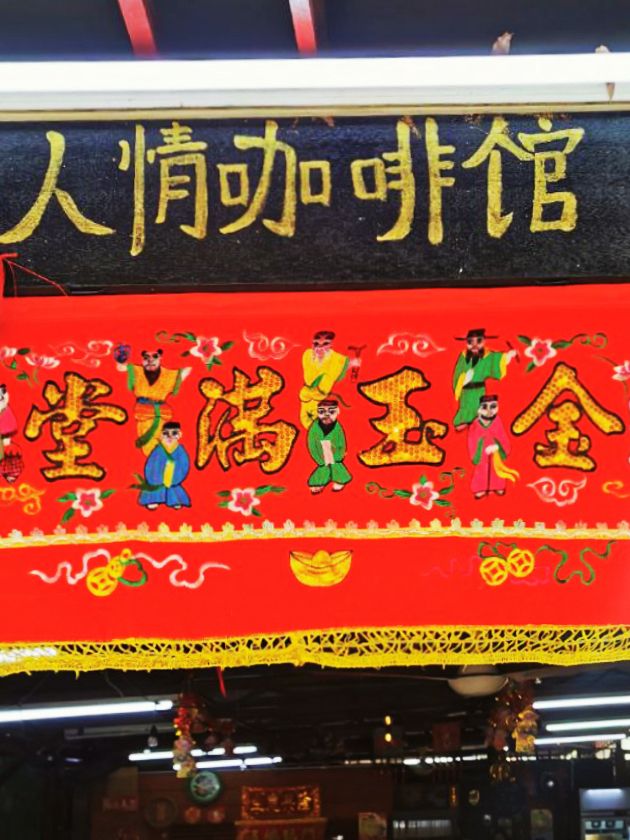 人情咖啡馆
金玉满堂